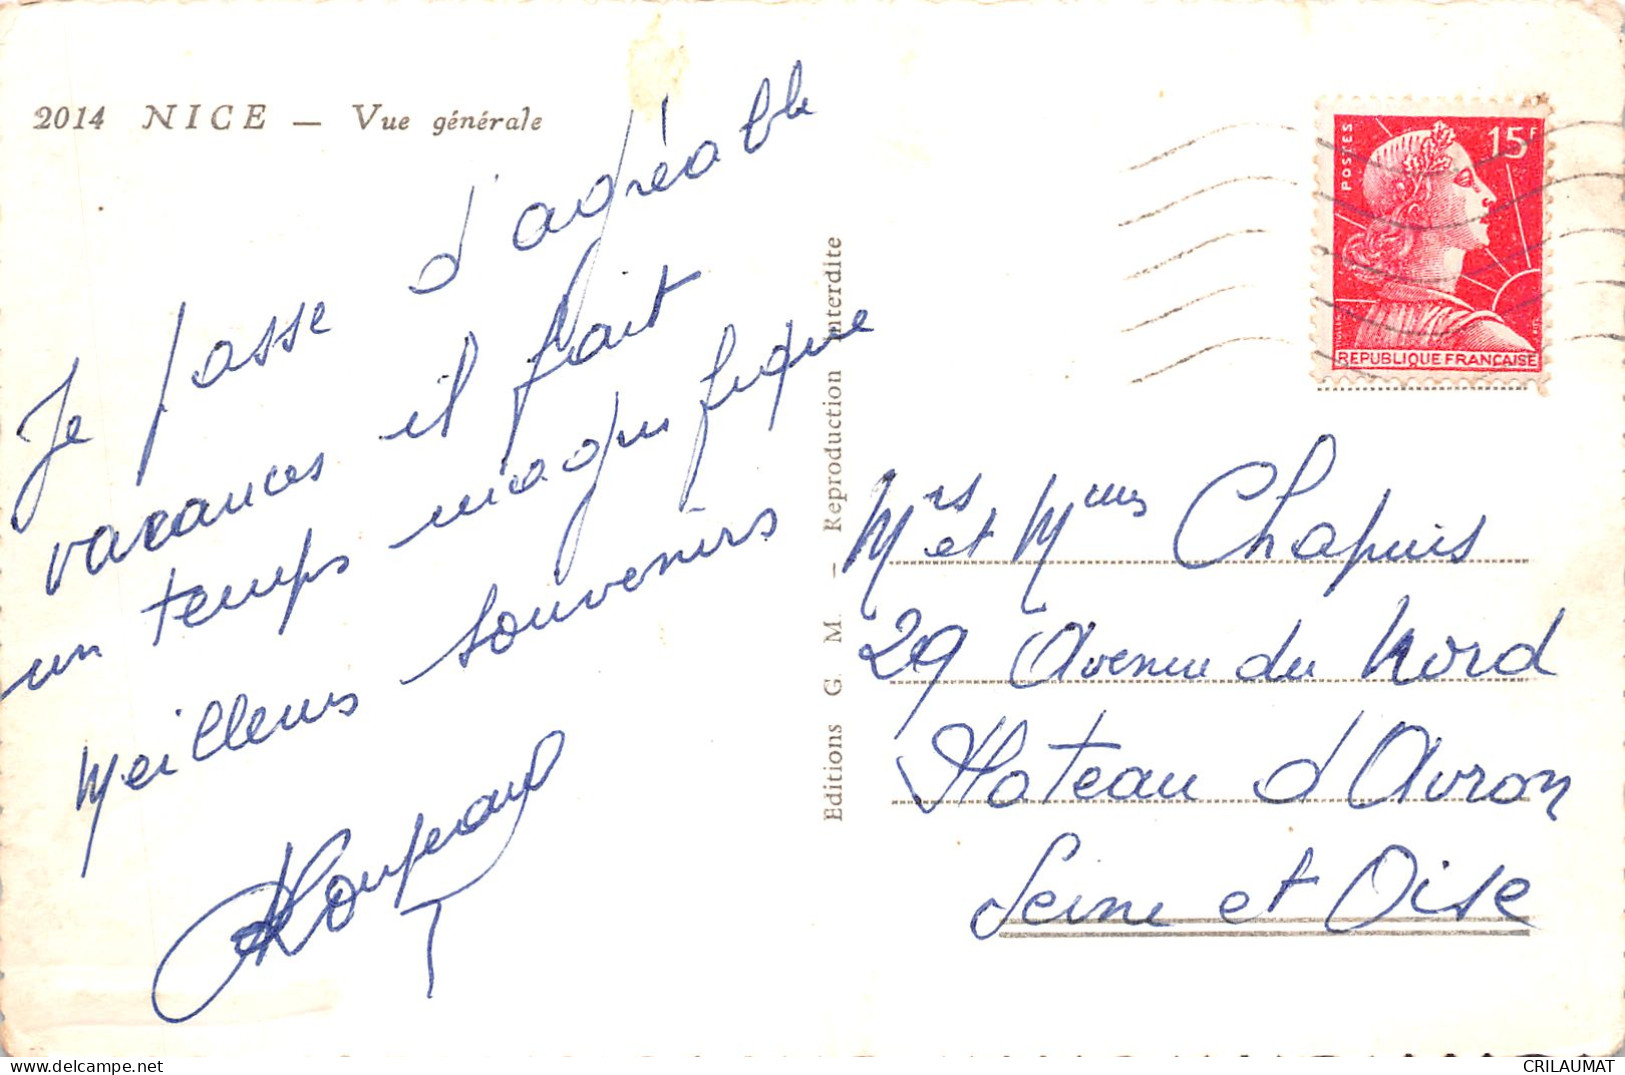 2014 NICE — Vue générale
Je passe d'agréable
vacances il fait
un temps magnifique
Meilleurs souvenirs
Editions G. M. – Reproduction interdite
POSTES
15F
REPUBLIQUE FRANÇAISE
Mrs et Mmes Chapuis
29 Avenue du Nord
Plateau d'Avron
Seine et Oise
delcampe.net
CRILAUMAT